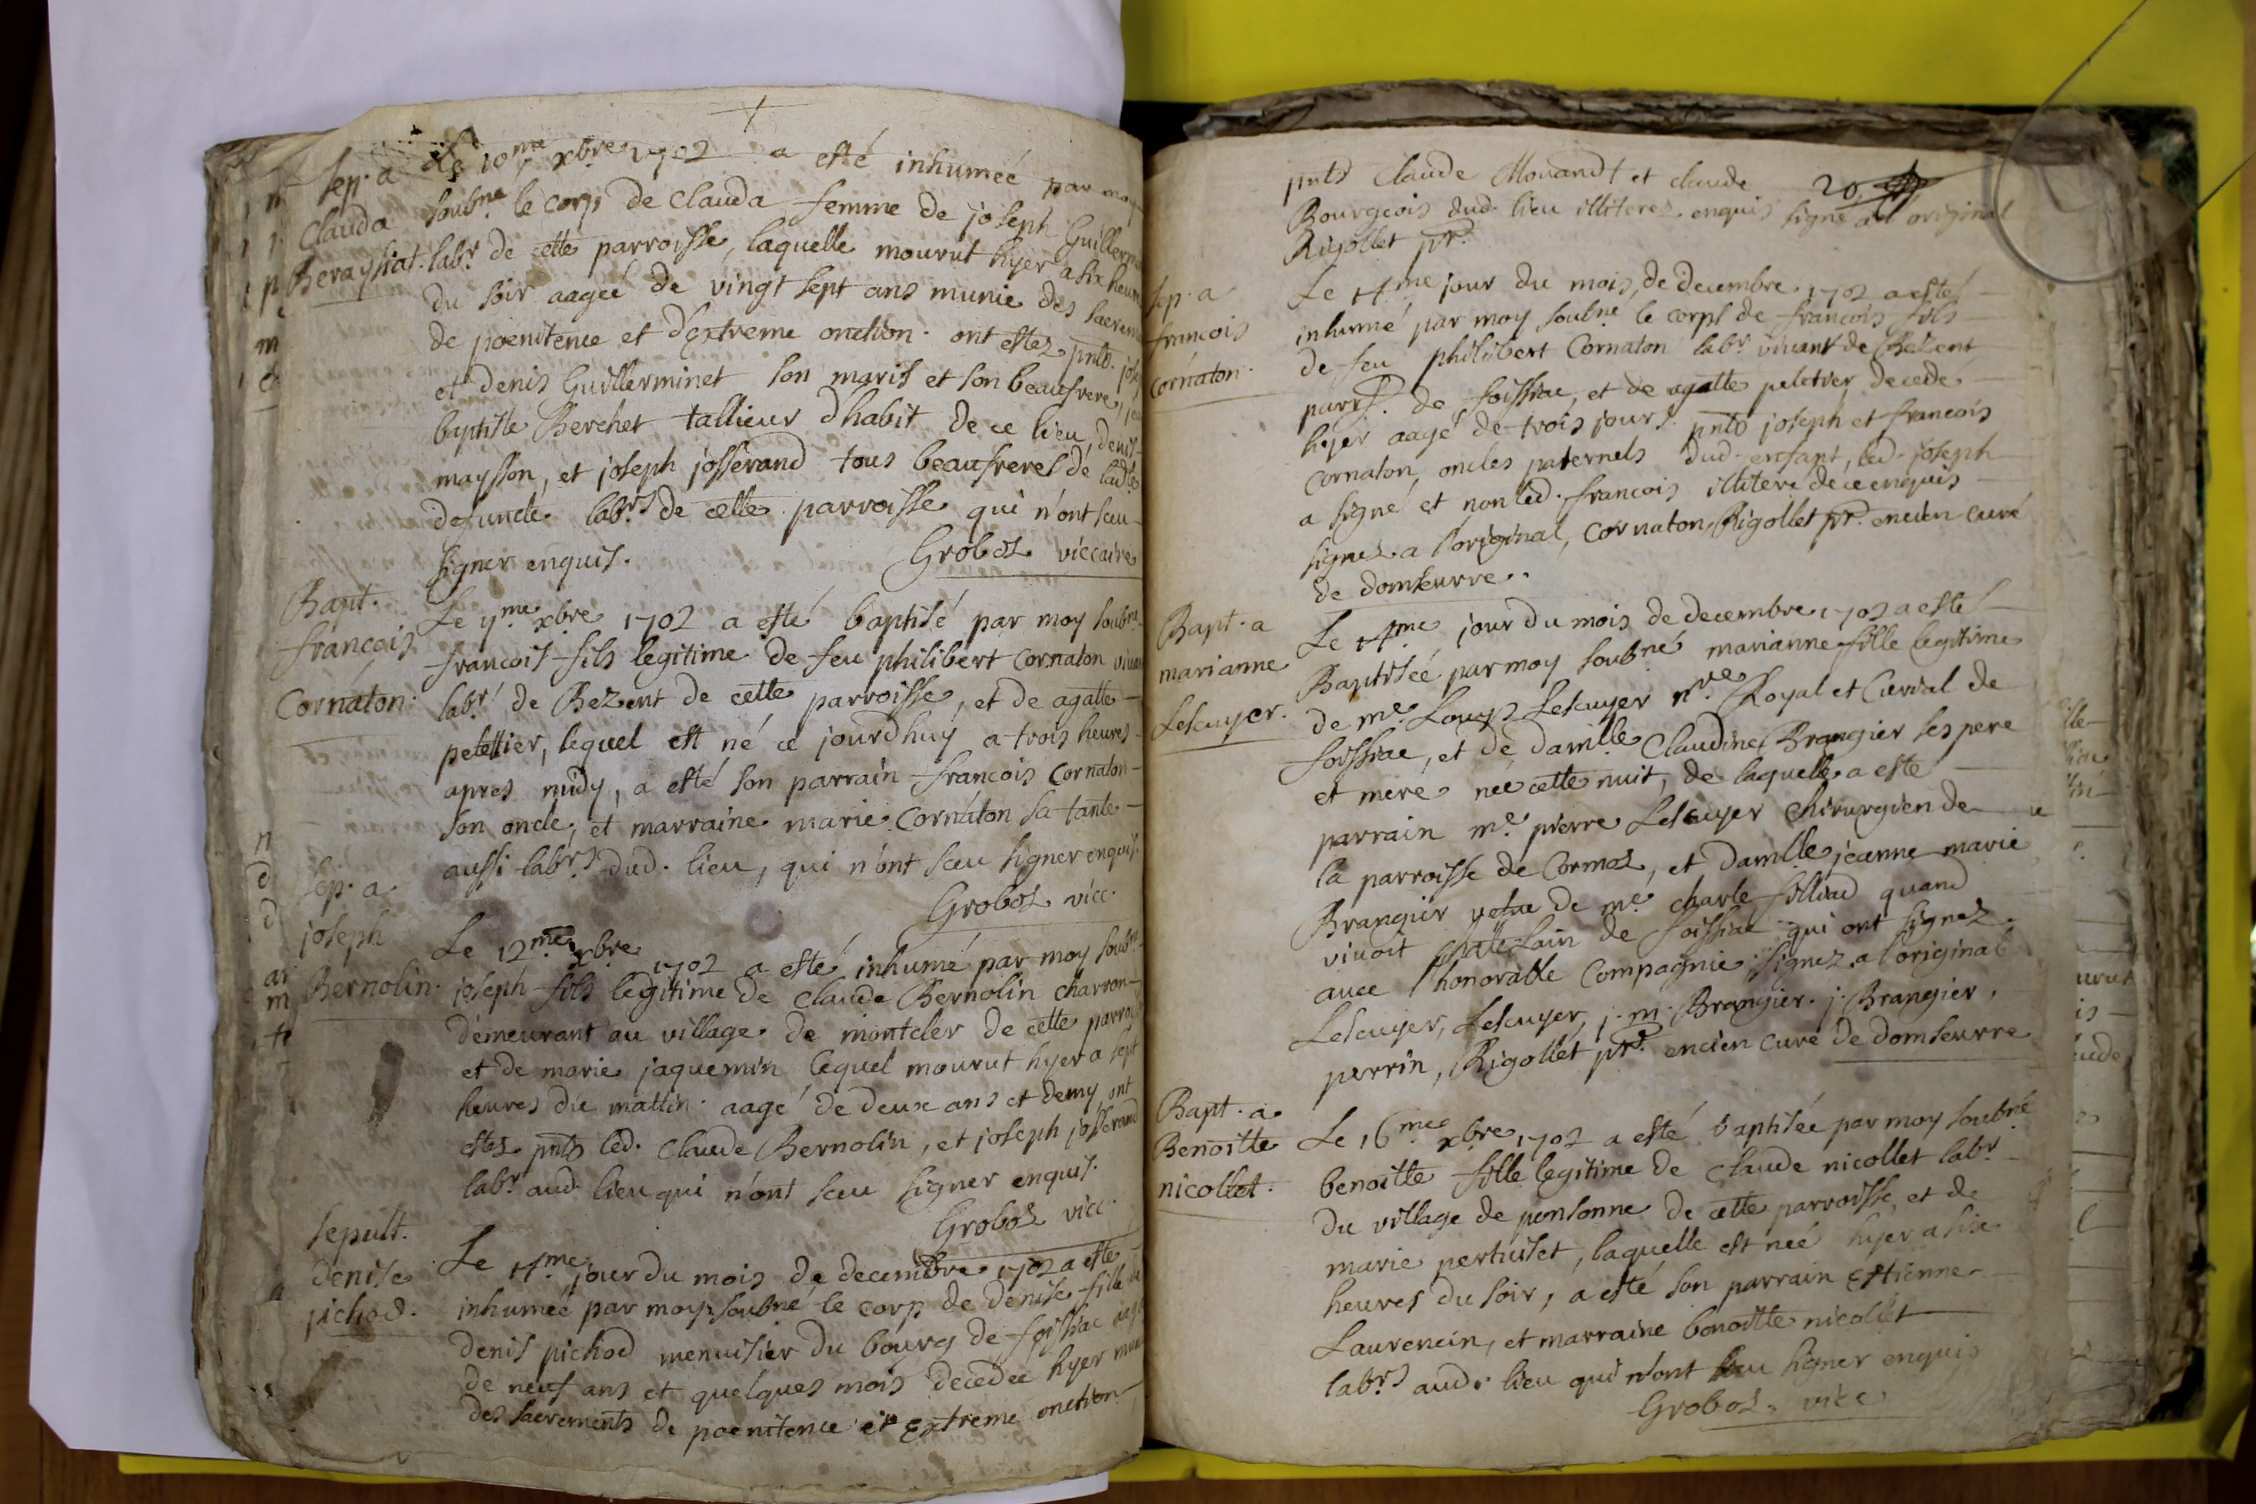 Sep. a
Clauda
Berayssiat.
Le 10me xbre 1702 a esté inhumée par moy
soubne le corps de Clauda femme de joseph Guillermi
labr de cette parroisse, laquelle mourut hyer a six heure
du soir aagée de vingt sept ans munie des sacrem
de poenitence et d'extreme onction. ont estez pnts. jose
et denis Guillerminet son maris et son beaufrere,
baptiste Berchet tallieur d'habit de ce lieu, denis
maysson, et joseph josserand tous beaufreres de ladte
defuncte labrs de cette parroisse qui n'ont sceu
signer enquis.
Groboz viccaire
Bapt.
francois
Cornaton.
Le 11me xbre 1702 a esté baptisé par moy soubne
francois fils legitime de feu philibert Cornaton vivan
labr de Bezent de cette parroisse, et de agatte
peletier, lequel est né ce jourdhuy a trois heures
apres midy, a esté son parrain francois Cornaton
son oncle, et marraine marie Cornaton sa tante
aussi labrs dud. lieu, qui n'ont sceu signer enquis.
Groboz vicc.
Sep. a
joseph
Bernolin.
Le 12me xbre 1702 a esté inhumé par moy soubne
joseph fils legitime de Claude Bernolin charron
demeurant au village de montcler de cette parroi
et de marie jaquemin lequel mourut hyer a sept
heures du mattin. aagé de deux ans et demy, ont
estez pnts led. Claude Bernolin, et joseph josserand
labr aud. lieu qui n'ont sceu signer enquis.
Groboz vicc.
Sepult.
denise
pichod.
Le 14me jour du mois de decembre 1702 a esté
inhumée par moy soubné le corp de denise fille de
denis pichod menuisier du bourg de foissiac aagé
de neuf ans et quelques mois decedée hyer mun
des sacrements de poenitence et extreme onction
20
pnts Claude Morandt et claude
Bourgeois dud. lieu illiteres enquis signé a l'original
Rigollet ptr.
Sep. a
francois
cornaton.
Le 14me jour du mois de decembre 1702 a esté
inhumé par moy soubne le corps de francois fils
de feu philibert Cornaton labr vivant de Bezent
parrs. de foissiac, et de agatte peletier decedé
hyer aagé de trois jours. pnts joseph et francois
cornaton, oncles paternels dud. enfant, led. joseph
a signé et non led. francois illitere de ce enquis
signez a l'original, cornaton, Rigollet ptr. encien curé
de domseurre.
Bapt. a
marianne
Lescuyer.
Le 14me jour du mois de decembre 1702 a esté
Baptisée par moy soubné marianne fille legitime
de me. Louys Lescuyer nre Royal et Curial de
foissiac, et de damlle Claudine Brangier ses pere
et mere née cette nuit, de laquelle a esté
parrain me. pierre Lescuyer chirurgien de
la parroisse de Cormoz, et damlle jeanne marie
Brangier vefve de me. charle filliod quand
vivoit Chattelain de foissiac qui ont signez
avec l'honorable Compagnie. signez a l'original
Lescuyer, Lescuyer, j. m. Brangier. j. Brangier,
perrin, Rigollet ptr. encien curé de domseurre
Bapt. a
Benoitte
nicollet.
Le 16me xbre 1702 a esté baptisée par moy soubné
benoitte fille legitime de Claude nicollet labr
du village de ponsonne de cette parroisse, et de
marie pertuiset, laquelle est née hyer a six
heures du soir, a esté son parrain Estienne
Laurencin, et marraine benoitte nicollet
labrs aud. lieu qui n'ont sceu signer enquis
Groboz. vicc